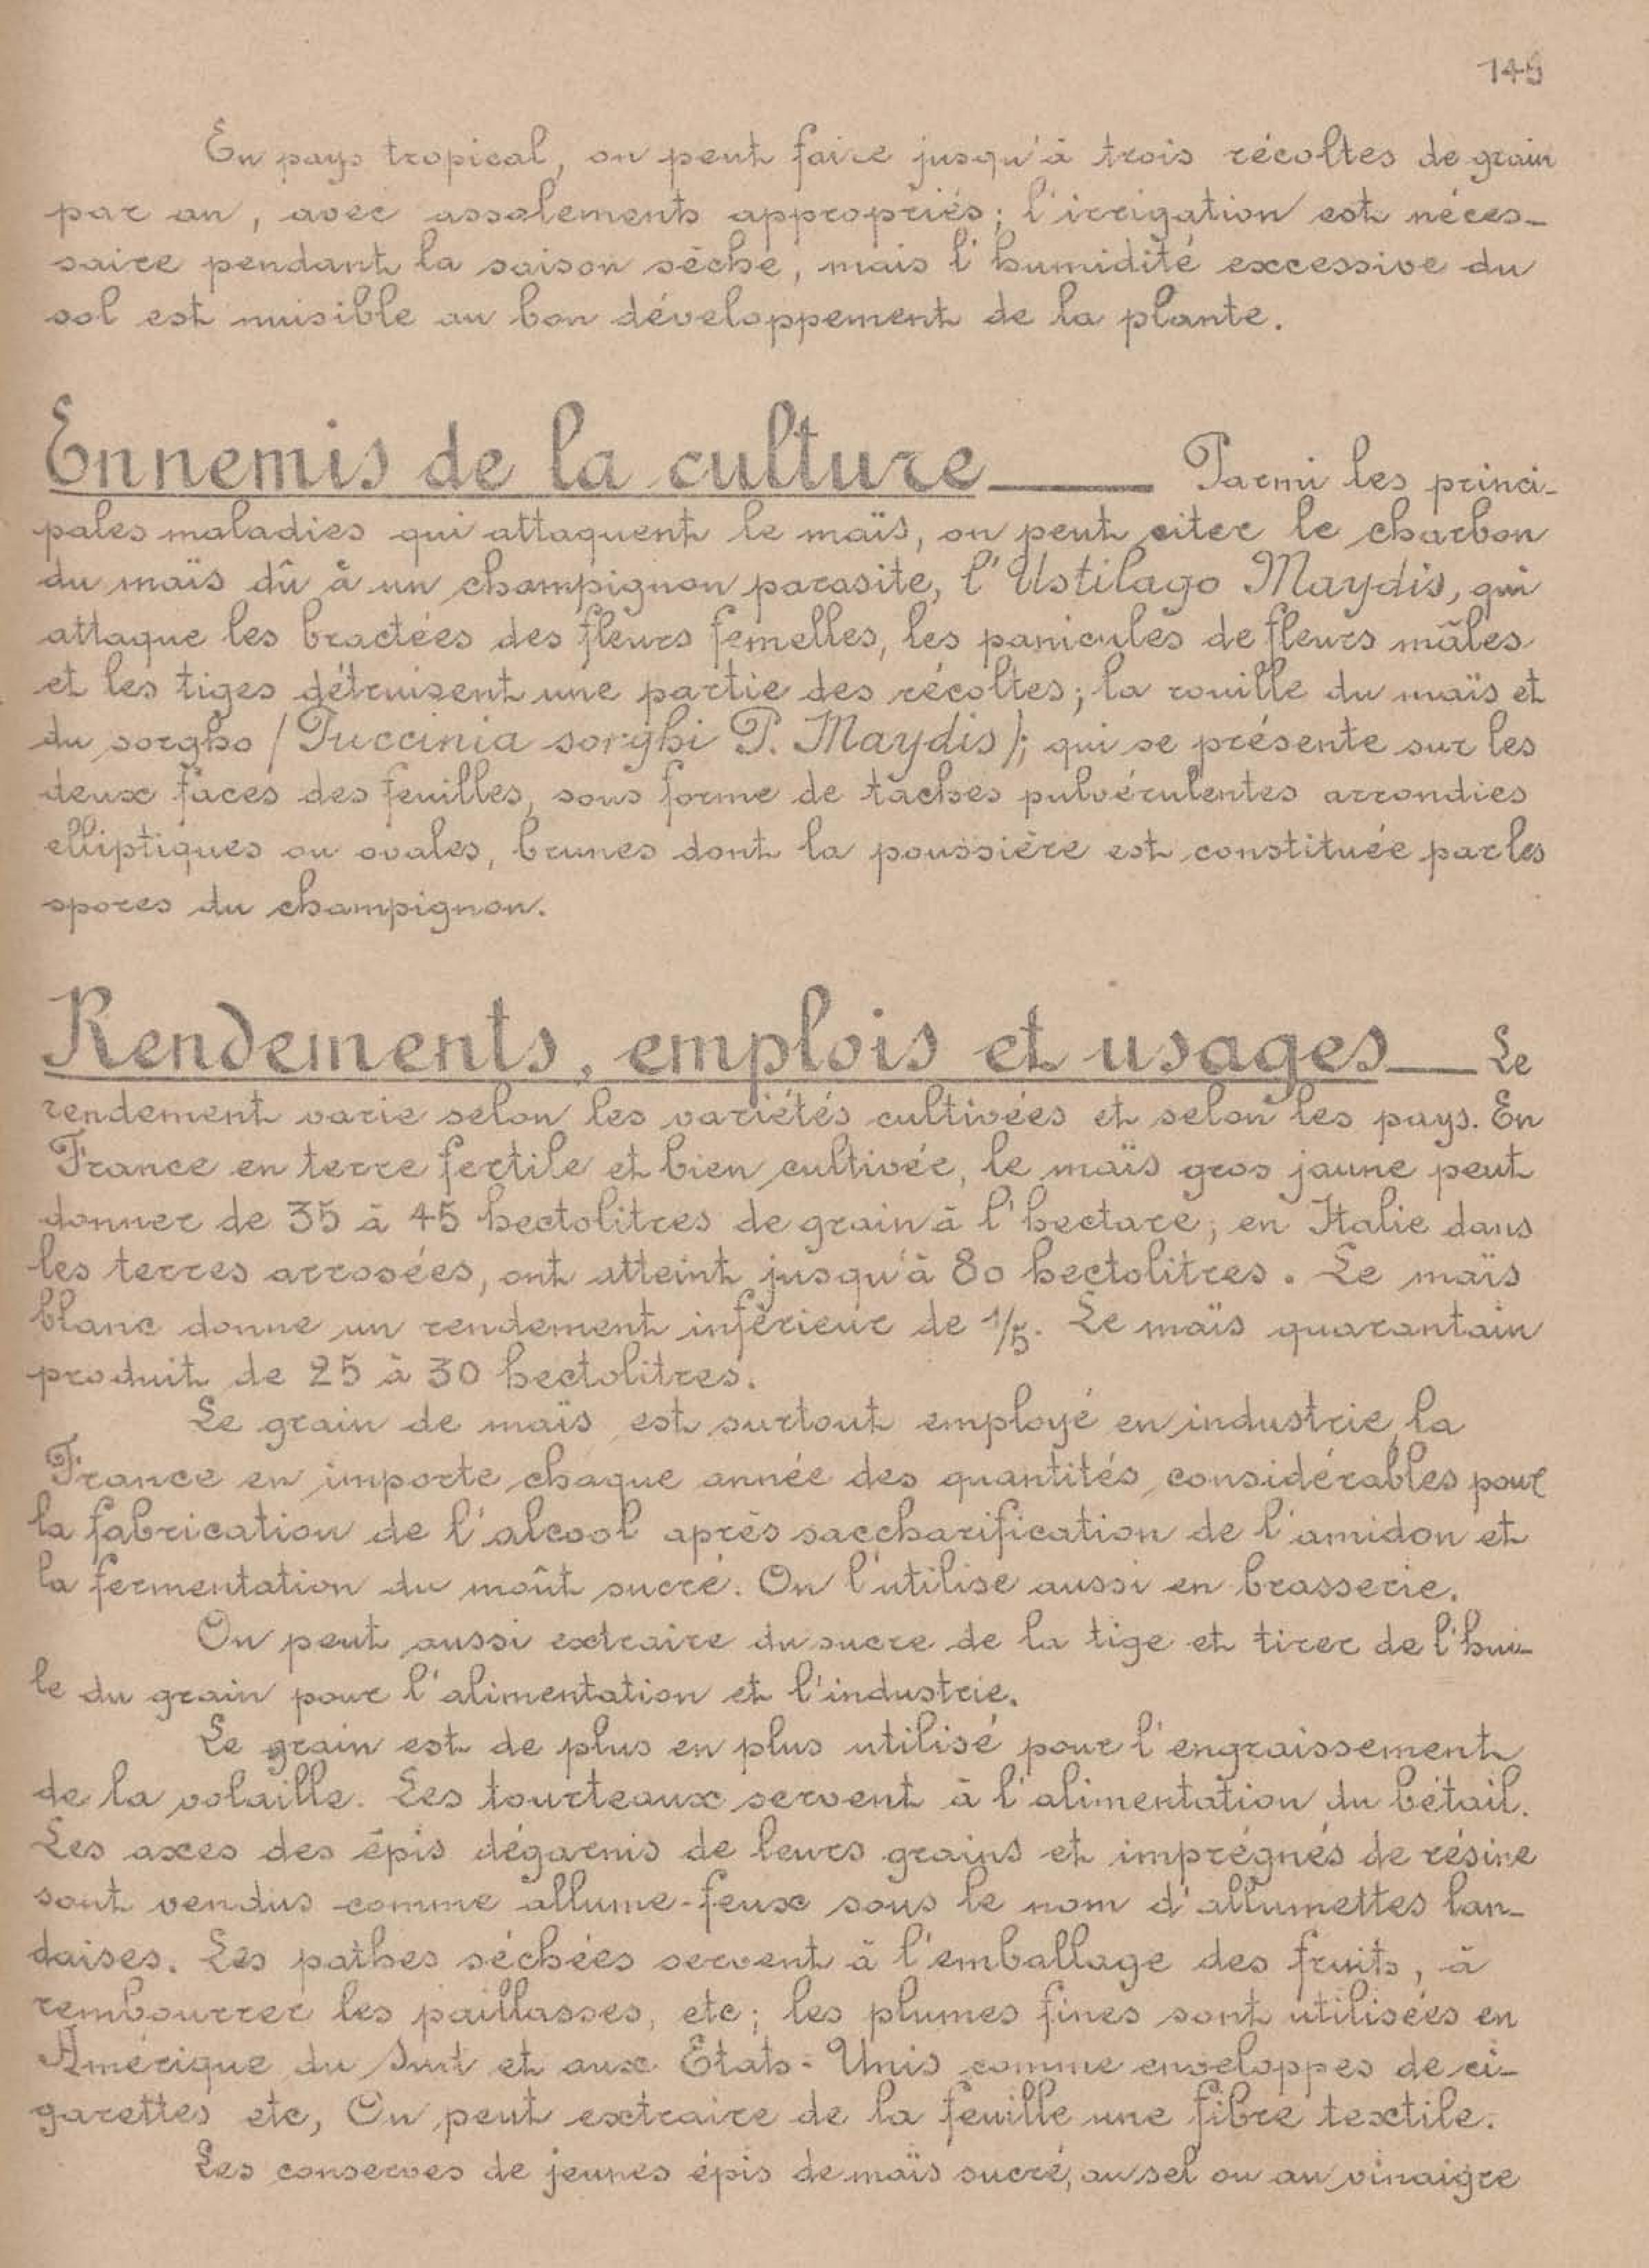 149
En pays tropical, on peut faire jusqu'à trois récoltes de grain
par an, avec assolements appropriés; l'irrigation est néces-
saire pendant la saison sèche, mais l'humidité excessive du
sol est nuisible au bon développement de la plante.
Ennemis de la culture — Parmi les princi-
pales maladies qui attaquent le maïs, on peut citer le charbon
du maïs dû à un champignon parasite, l'Ustilago Maydis, qui
attaque les bractées des fleurs femelles, les panicules de fleurs mâles
et les tiges détruisent une partie des récoltes; la rouille du maïs et
du sorgho (Puccinia sorghi P. Maydis); qui se présente sur les
deux faces des feuilles, sous forme de taches pulvérulentes arrondies
elliptiques ou ovales, brunes dont la poussière est constituée par les
spores du champignon.
Rendements, emplois et usages — Le
rendement varie selon les variétés cultivées et selon les pays. En
France en terre fertile et bien cultivée, le maïs gros jaune peut
donner de 35 à 45 hectolitres de grain à l'hectare; en Italie dans
les terres arrosées, ont atteint jusqu'à 80 hectolitres. Le maïs
blanc donne un rendement inférieur de 1/5. Le maïs quarantain
produit de 25 à 30 hectolitres.
Le grain de maïs est surtout employé en industrie, la
France en importe chaque année des quantités considérables pour
la fabrication de l'alcool après saccharification de l'amidon et
la fermentation du moût sucré. On l'utilise aussi en brasserie.
On peut aussi extraire du sucre de la tige et tirer de l'hui-
le du grain pour l'alimentation et l'industrie.
Le grain est de plus en plus utilisé pour l'engraissement
de la volaille. Les tourteaux servent à l'alimentation du bétail.
Les axes des épis dégarnis de leurs grains et imprégnés de résine
sont vendus comme allume-feux sous le nom d'allumettes lan-
daises. Les pathes séchées servent à l'emballage des fruits, à
rembourrer les paillasses, etc; les plumes fines sont utilisées en
Amérique du Sud et aux Etats-Unis comme enveloppes de ci-
garettes etc, On peut extraire de la feuille une fibre textile.
Les conserves de jeunes épis de maïs sucré, au sel ou au vinaigre